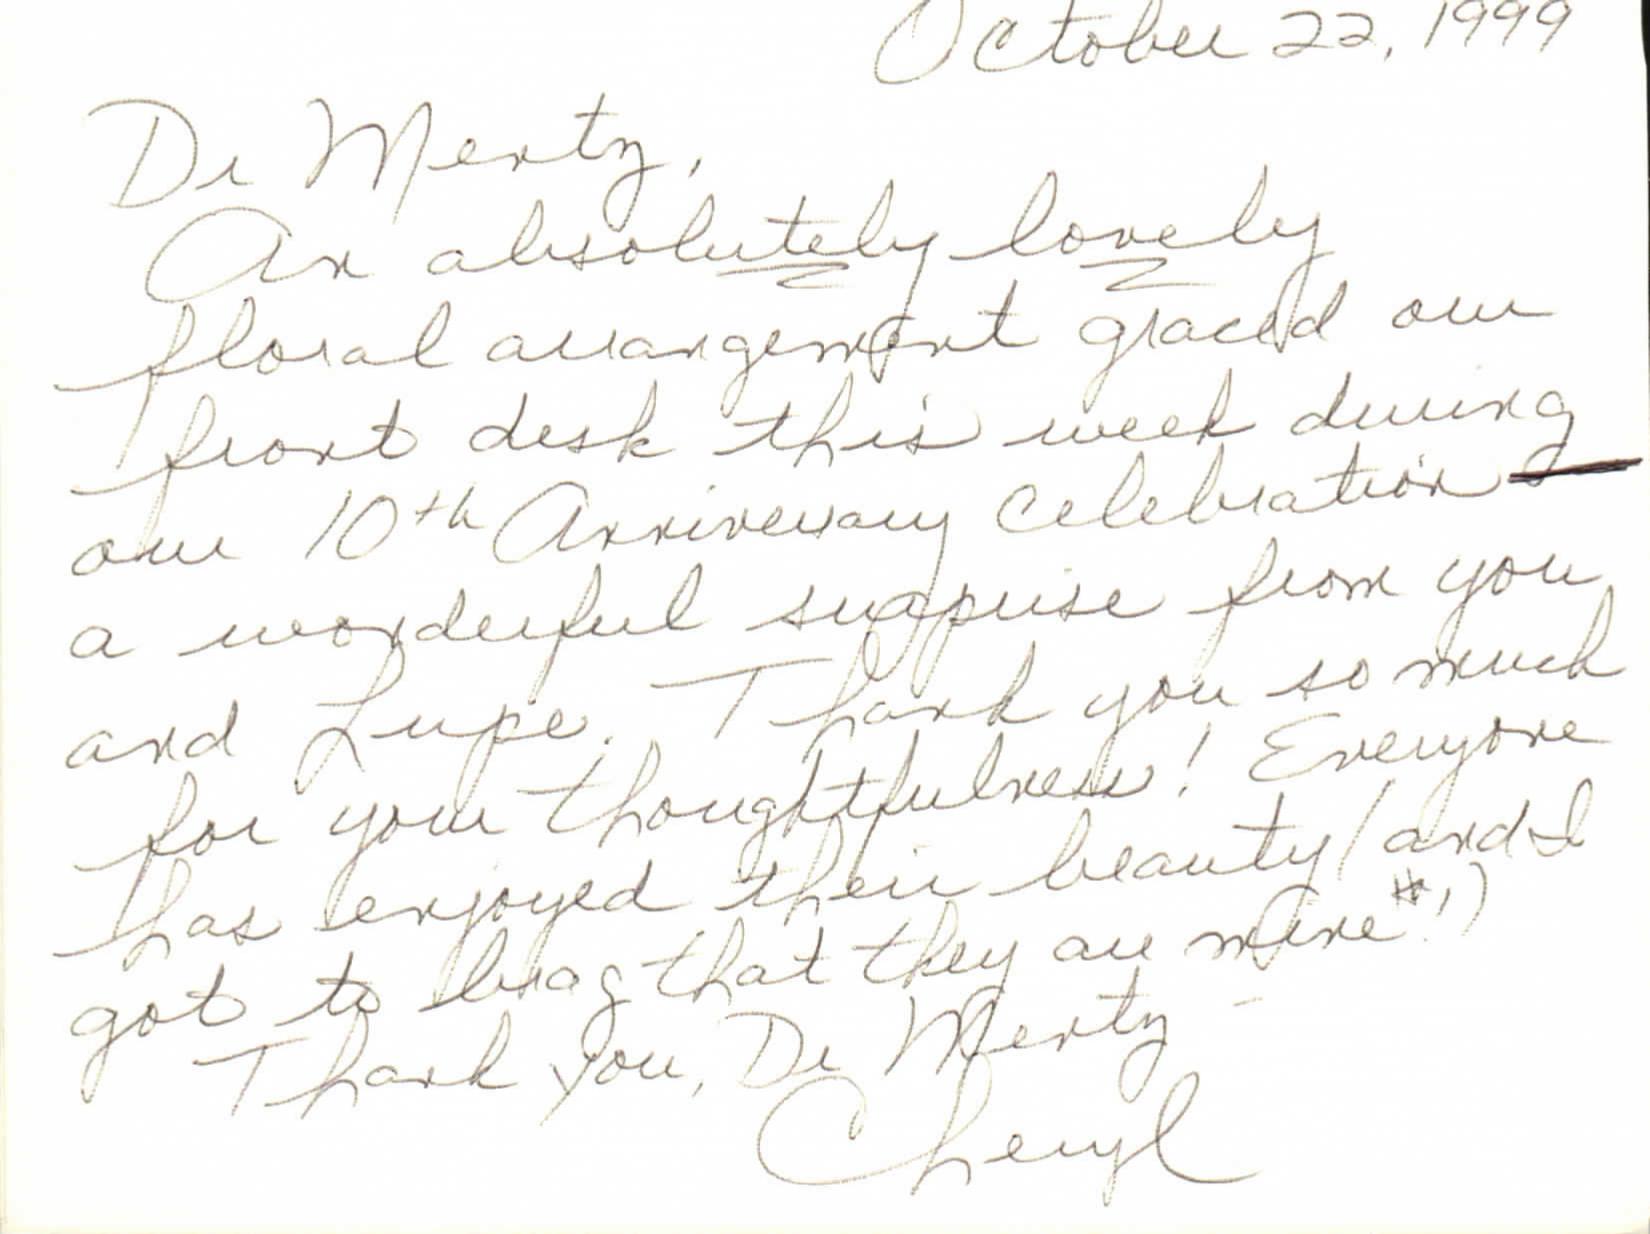 October 22, 1999
Dr Mertz,
An absolutely lovely
floral arrangement graced our
front desk this week during
our 10th Anniversary celebration —
a wonderful surprise from you
and Lupe. Thank you so much
for your thoughtfulness! Everyone
has enjoyed their beauty (and I
got to brag that they are mine!)
Thank you, Dr Mertz -
Cheryl